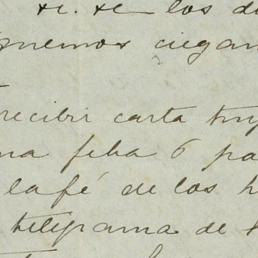 &. &e los
quemos ciegam
recibir carta tuy
ma feha 6 pa
café de los h
telegrama de